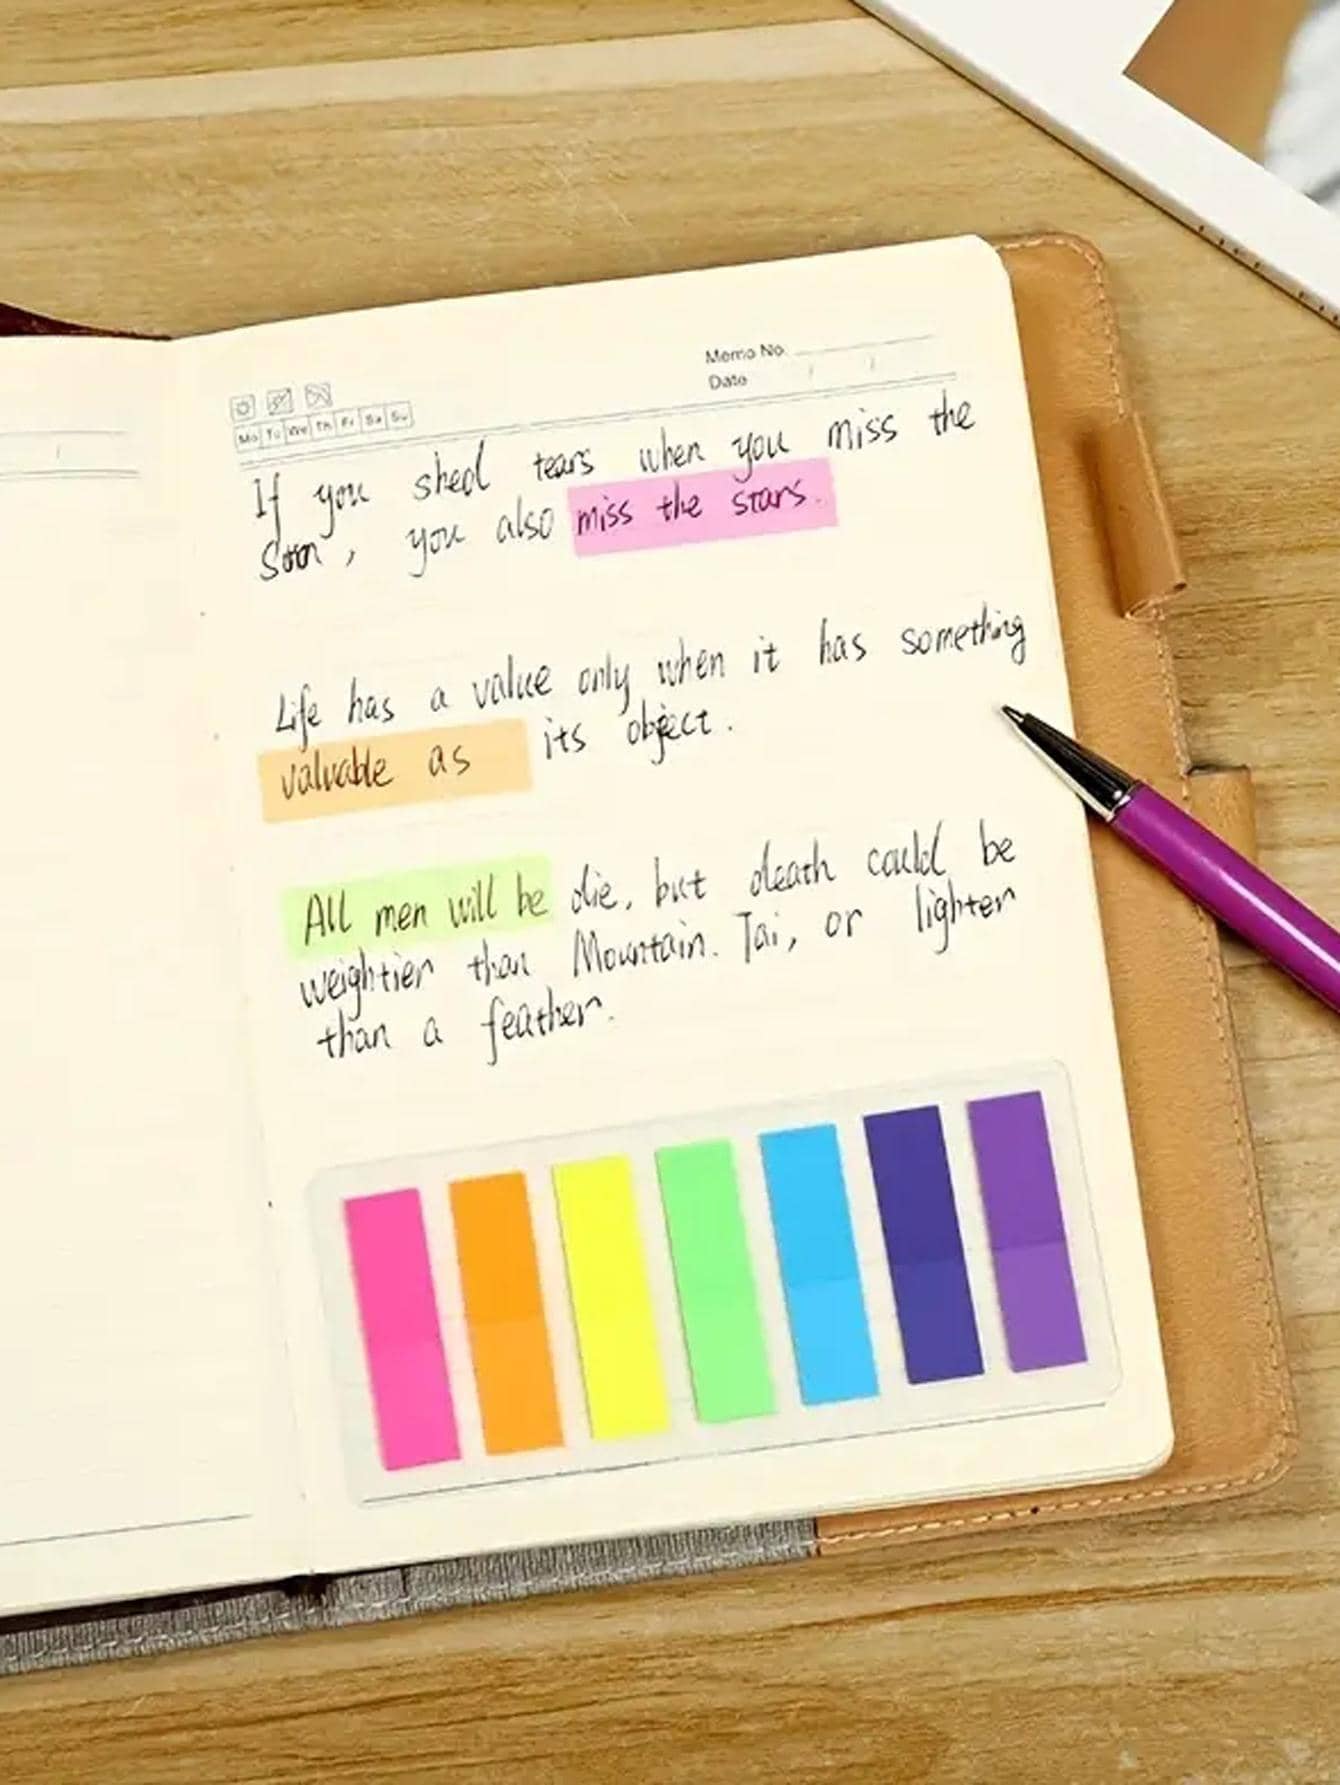 Memo No.
Date / /
Mo Tu We Th Fr Sa Su
If you shed tears when you miss the
Soon, you also miss the stars.
Life has a value only when it has something
valuable as its object.
All men will be die, but death could be
weightier than Mountain. Tai, or lighter
than a feather.